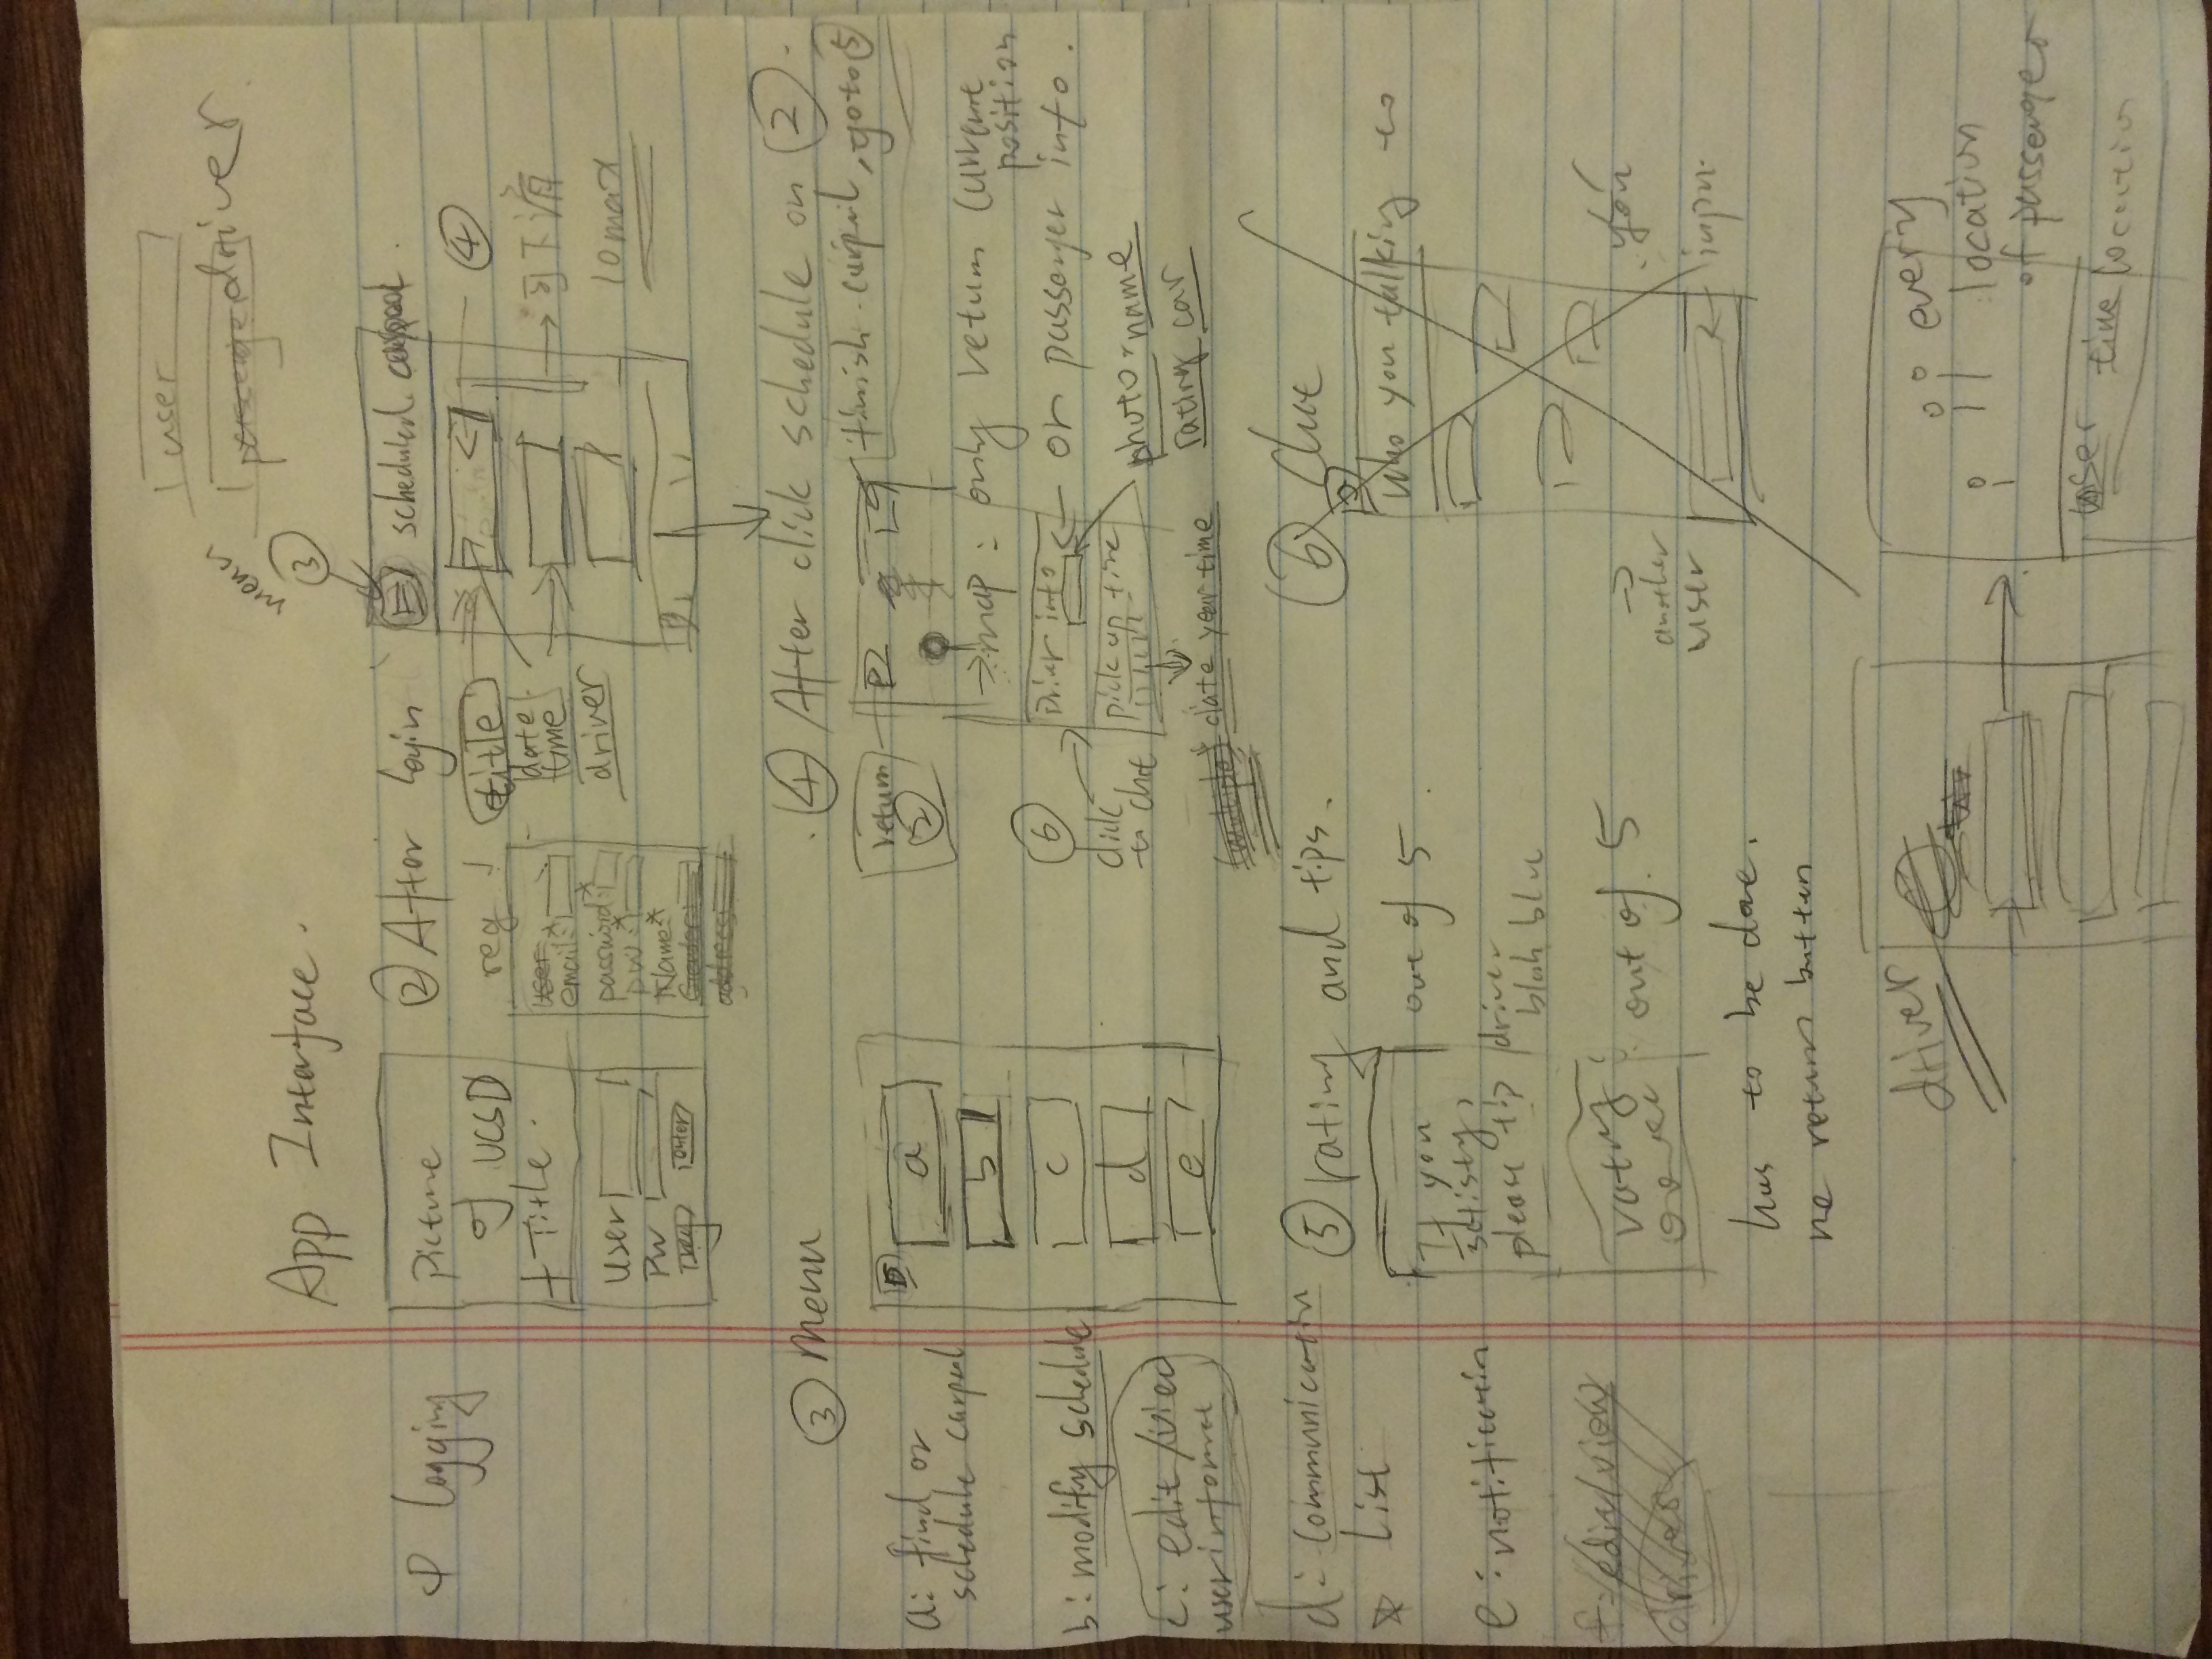 user
driver
menu
③
App Interface.
① logging
Picture
of UCSD
+ Title.
user
PW
reg
enter
② After login
reg
user
email *
password: *
pw: *
Name *
Gender
address
title
date
time
driver
scheduled carpool.
④
可下滑
10 max
③ menu
a: find or
schedule carpool
b: modify schedule
c: edit/view
user informat
d: communication
list
e: notification
f: edit/view
driver
a
b
c
d
e
④ After click schedule on ②.
return
②
finish carpool, go to ⑤
→map: only return current
position
⑥
click
to chat
Driver info
or passenger info.
pick up time
photo name
rating car
(multiple) date year time
⑤ rating and tips.
If you
satisfy,
please tip driver
blah blu
out of 5
rating:
out of 5
has to be done.
no return button
⑥ chat
who you talking to
→
another
user
you
input
driver
every
location
of passenger
user time location